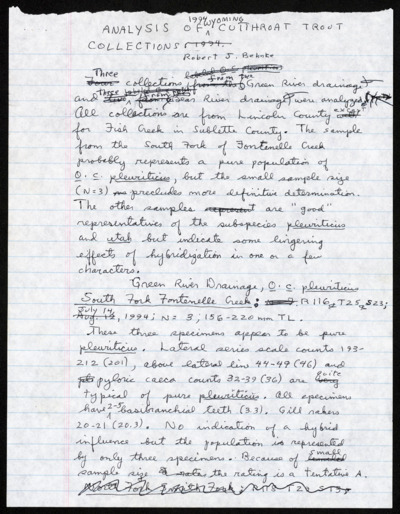 1994 WYOMING
ANALYSIS OF CUTTHROAT TROUT
COLLECTIONS 1994.
Robert J. Behnke
Three
collections from the Green River drainage
and from Bear River drainage were analyzed.
All collections are from Lincoln County except
for Fish Creek in Sublette County. The sample
from the South Fork of Fontinelle Creek
probably represents a pure population of
O. c. pleuriticus, but the small sample size
(N=3) precludes more definitive determination.
The other samples are "good"
representatives of the subspecies pleuriticus
and utah but indicate some lingering
effects of hybridization in one or a few
characters.
Green River Drainage, O. c. pleuriticus
South Fork Fontinelle Creek: R116, T25, S23;
July 14
Aug. 12, 1994; N= 3, 156-220 mm TL.
These three specimens appear to be pure
pleuriticus. Lateral series scale counts 193-
212 (201), above lateral line 44-49 (46) and
pyloric caeca counts 32-39 (36) are quite
typical of pure pleuriticus. All specimens
have 2-5 basibranchial teeth (3.3). Gill rakers
20-21 (20.3). No indication of a hybrid
influence but the population is represented
by only three specimens. Because of small
sample size the rating is a tentative A.